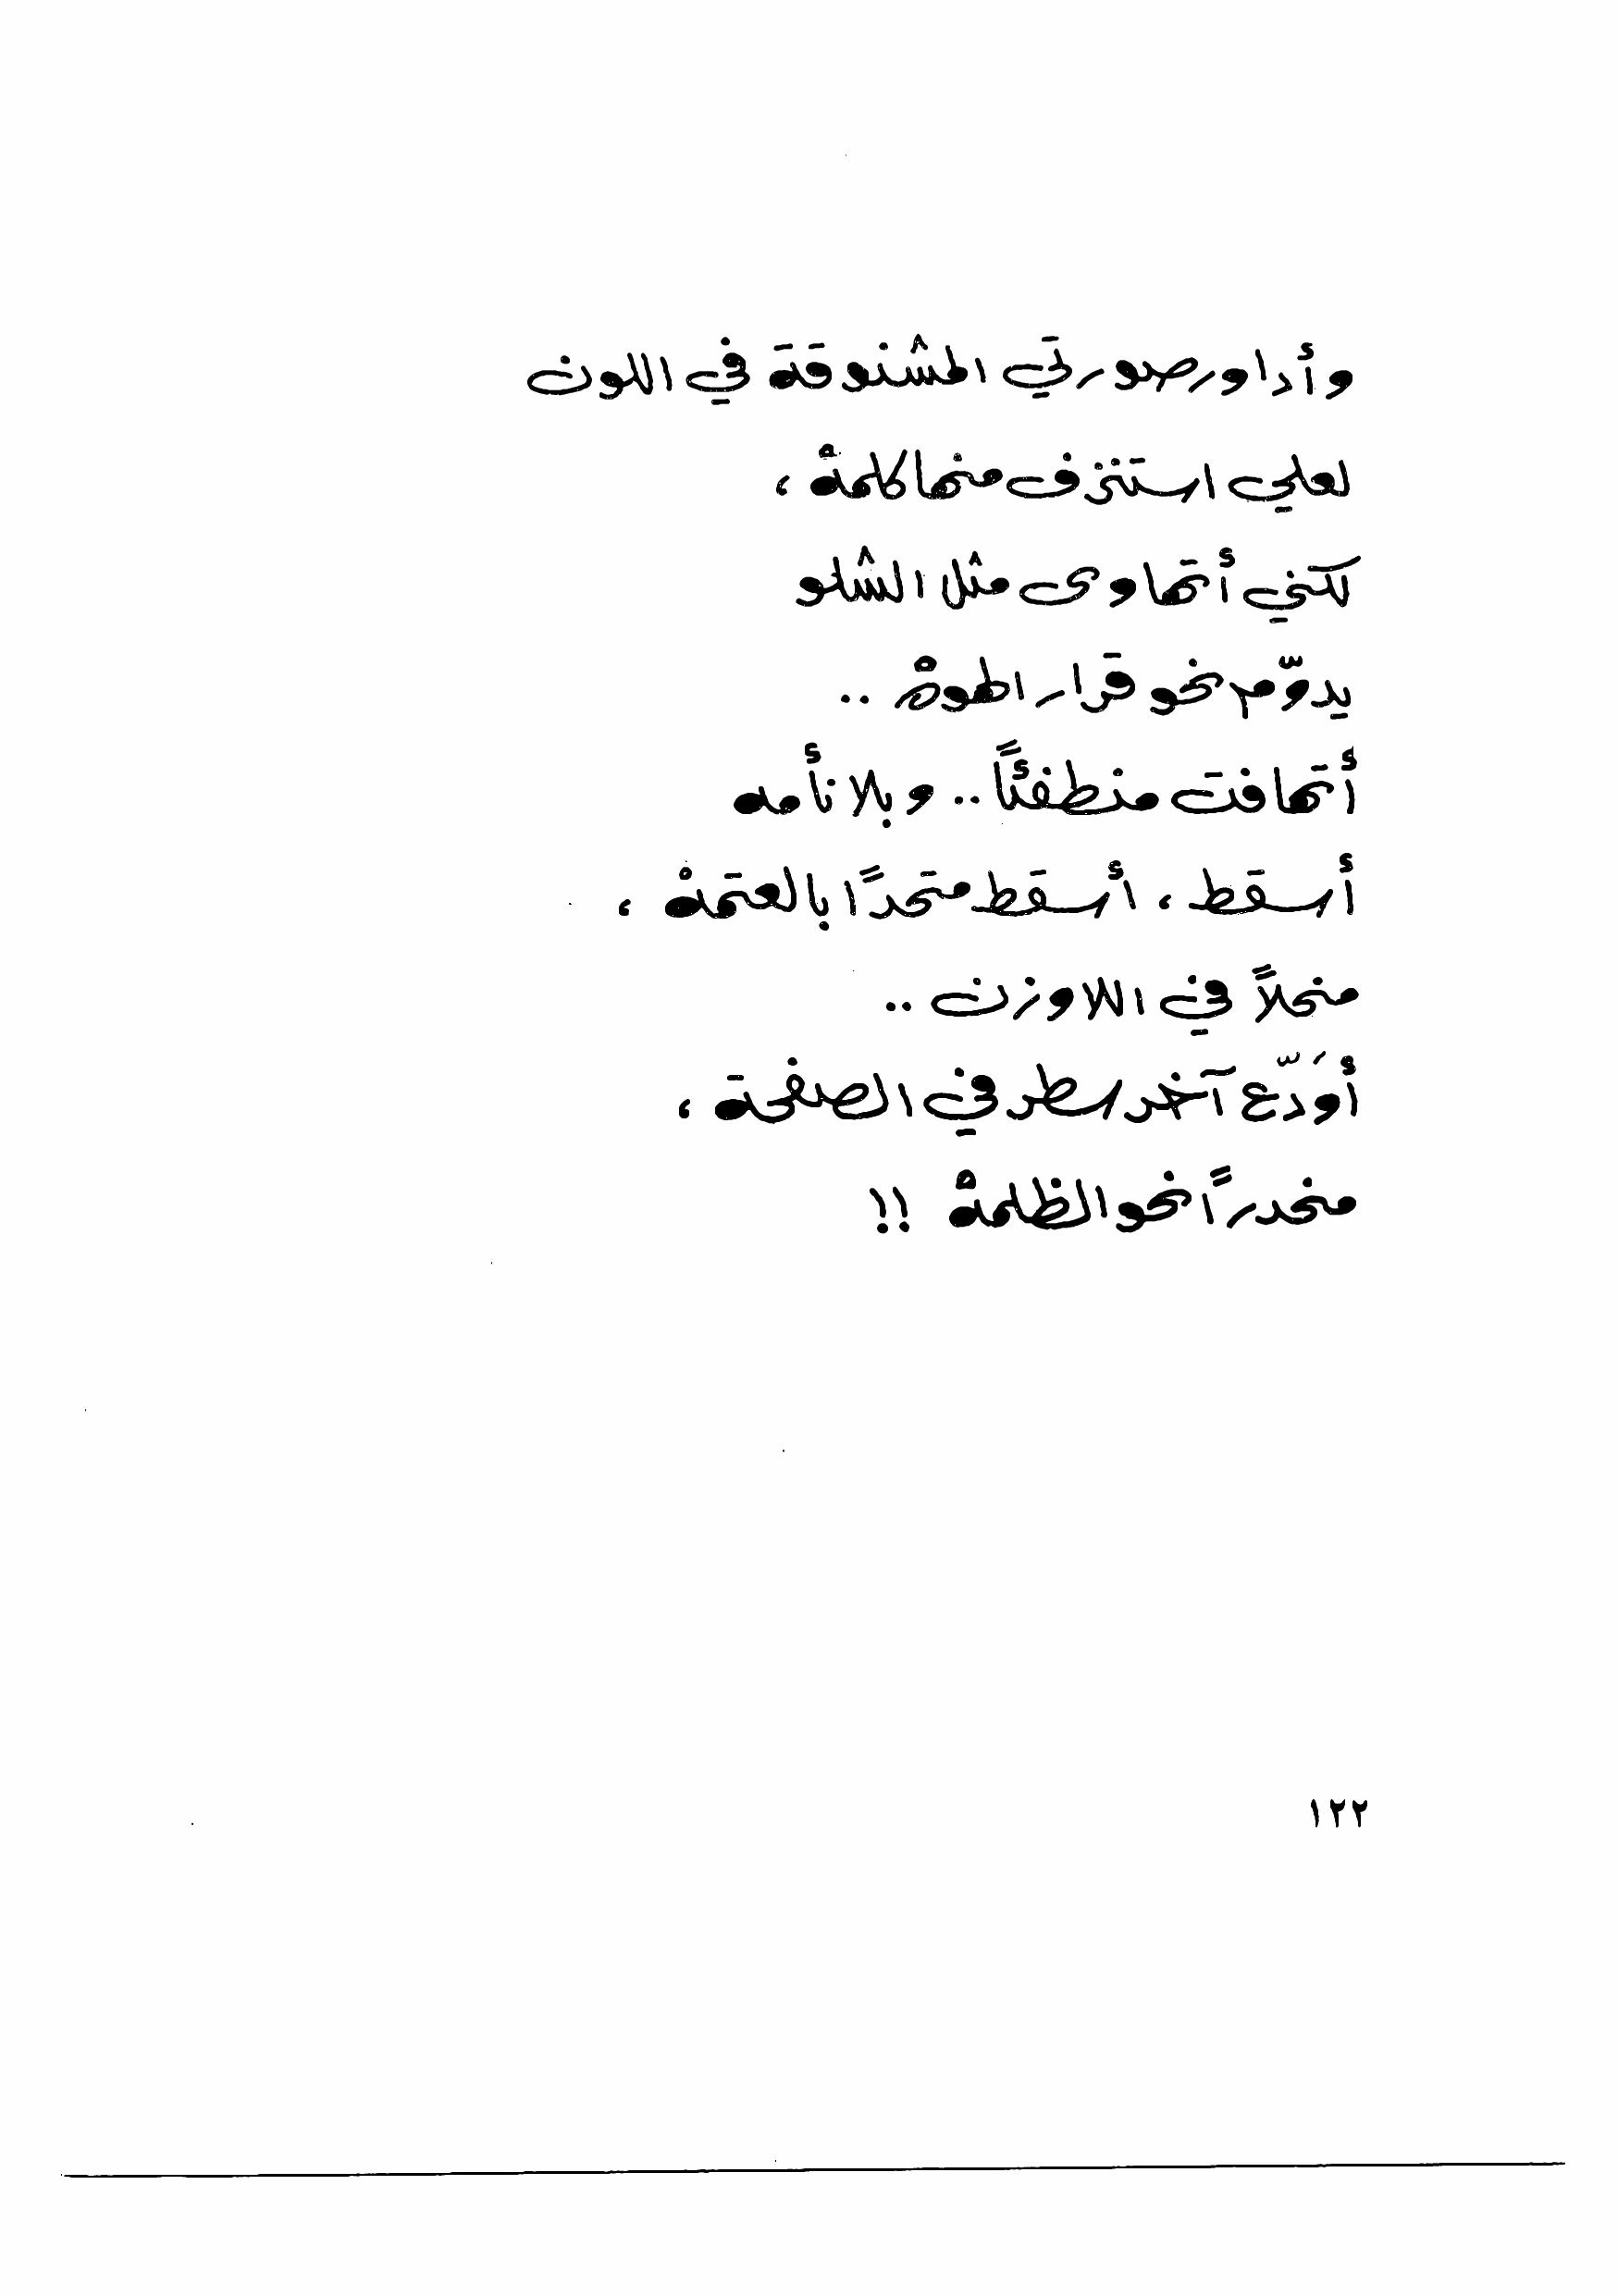 وأداور صورتي المشنوقة في اللون
لعلي استنزف منها كلمهْ ،
لكني أتهاوى مثل الشلو
يدوّم نحو قرار الهوهْ ..
أتهافت منطفئاً .. وبلا نأمه
أسقط ، أسقط متحدًا بالعتمهْ ،
منحلاً في اللاوزن ..
أوَدّع آخر سطر في الصفحة ،
منحدراً نحو الظلمهْ !!
١٢٢